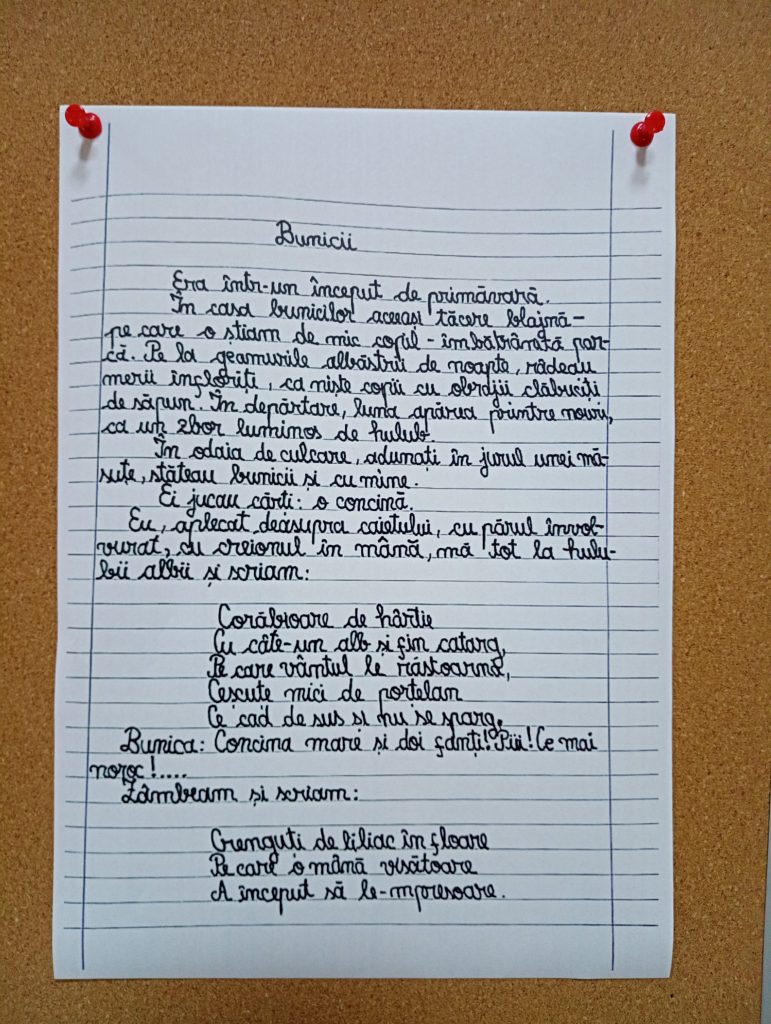 Bunicii
Era într-un început de primăvară.
În casa bunicilor aceeași tăcere blajnă -
pe care o știam de mic copil - îmbătrânită par-
că. Pe la geamurile albăstrii de noapte, râdeau
merii înfloriți, ca niște copii cu obrajii clăbuciți
de săpun. În depărtare, luna apărea printre nouri,
ca un zbor luminos de hulub.
În odaia de culcare, adunați în jurul unei mă-
suțe, stăteau bunicii și cu mine.
Ei jucau cărți: o concină.
Eu, aplecat deasupra caietului, cu părul învol-
vurat, cu creionul în mână, mă tot la hulu-
bii albii și scriam:
Corăbioare de hârtie
Cu câte-un alb și fin catarg,
Pe care vântul le răstoarnă,
Cescute mici de porțelan
Ce cad de sus și nu se sparg.
Bunica: Concina mare și doi fanți! Piii! Ce mai
noroc!....
Zâmbeam și scriam:
Crenguți de liliac în floare
Pe care o mână visătoare
A început să le-mpresoare.